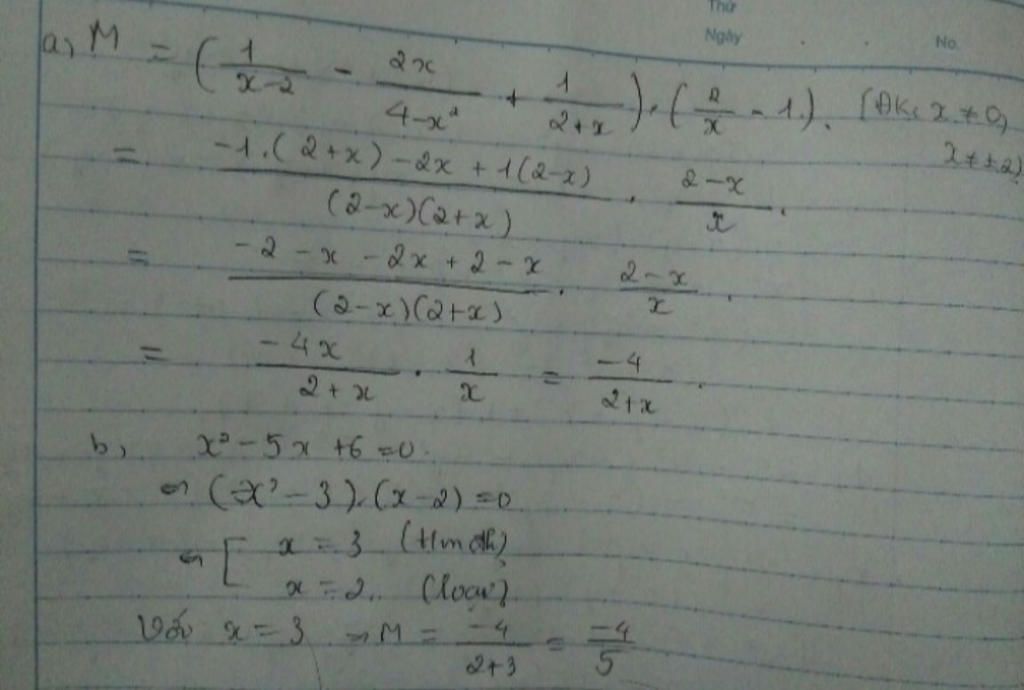 Thứ
Ngày . . No.
a, M = (1/(x-2) - 2x/(4-x²) + 1/(2+x)) . (2/x - 1). (ĐK: x ≠ 0, x ≠ ±2)
= (-1.(2+x) - 2x + 1(2-x))/((2-x)(2+x)) . (2-x)/x .
= (-2 - x - 2x + 2 - x)/((2-x)(2+x)) . (2-x)/x .
= -4x/(2+x) . 1/x = -4/(2+x) .
b, x² - 5x + 6 = 0.
⇔ (x - 3).(x - 2) = 0
⇔ [ x = 3 (tmđk)
x = 2. (loại)
Với x = 3 ⇒ M = -4/(2+3) = -4/5